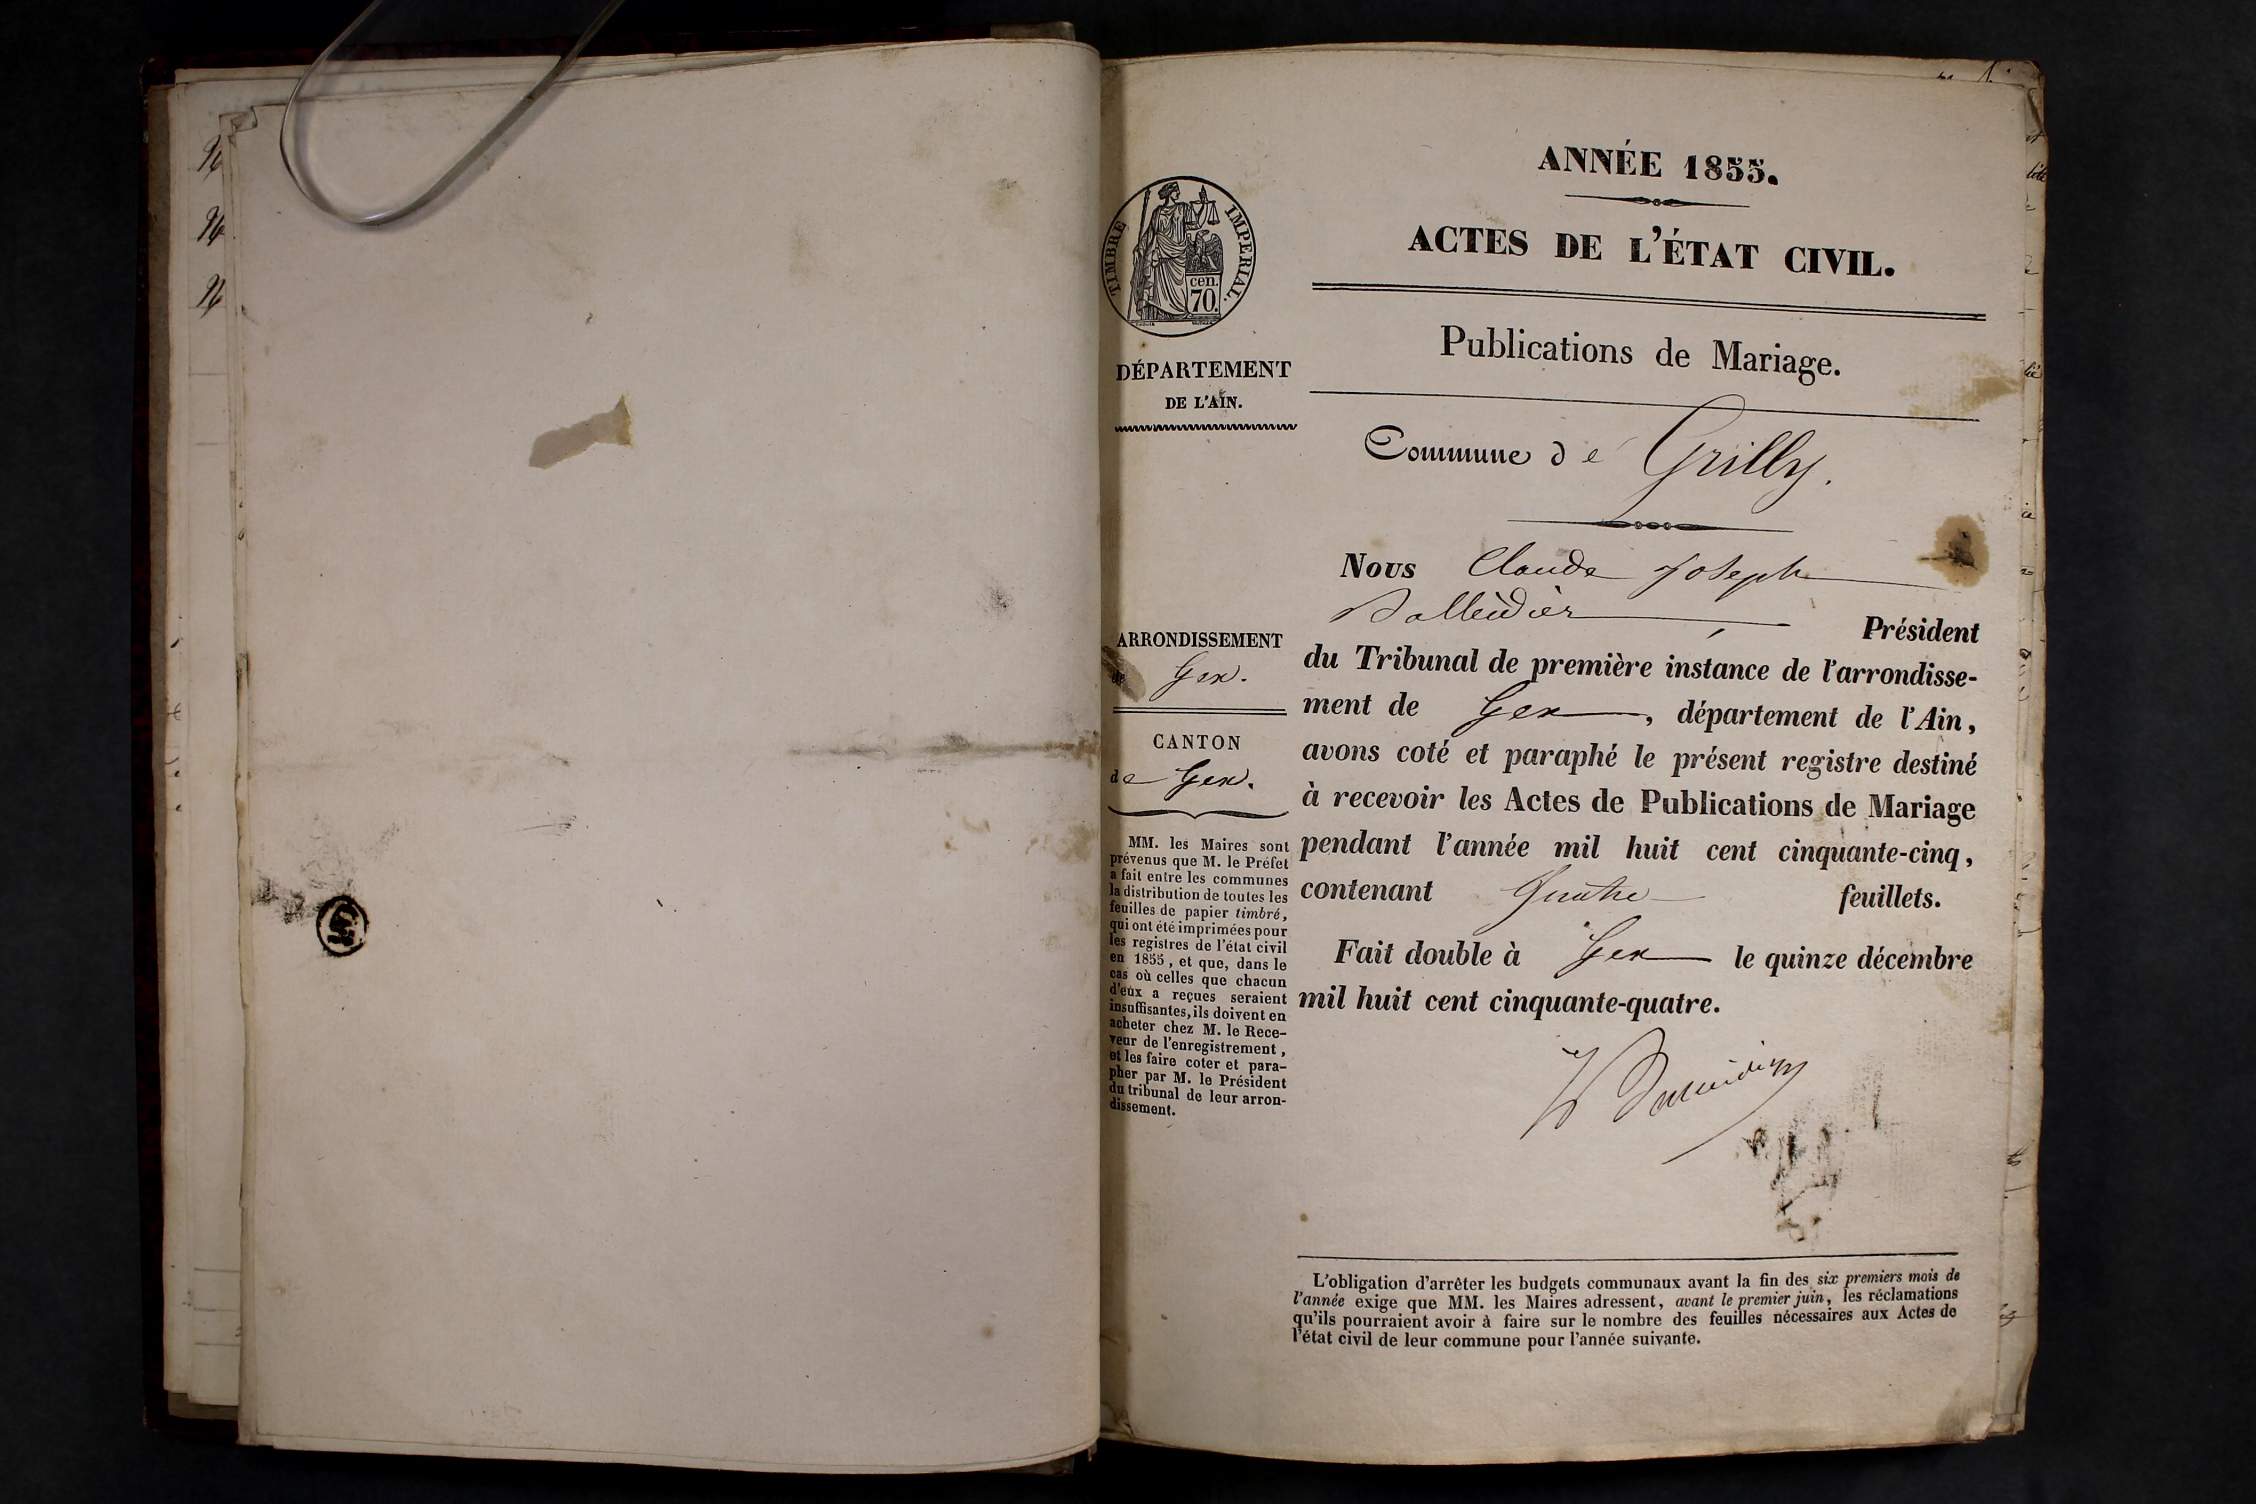 ANNÉE 1855.
ACTES DE L'ÉTAT CIVIL.
Publications de Mariage.
Commune de Grilly.
TIMBRE IMPERIAL.
cen.
70.
DÉPARTEMENT
DE L'AIN.
ARRONDISSEMENT
de Gex.
CANTON
de Gex.
MM. les Maires sont
prévenus que M. le Préfet
a fait entre les communes
la distribution de toutes les
feuilles de papier timbré,
qui ont été imprimées pour
les registres de l'état civil
en 1855, et que, dans le
cas où celles que chacun
d'eux a reçues seraient
insuffisantes, ils doivent en
acheter chez M. le Rece-
veur de l'enregistrement,
et les faire coter et para-
pher par M. le Président
du tribunal de leur arron-
dissement.
Nous Claude Joseph
Président
du Tribunal de première instance de l'arrondisse-
ment de Gex, département de l'Ain,
avons coté et paraphé le présent registre destiné
à recevoir les Actes de Publications de Mariage
pendant l'année mil huit cent cinquante-cinq,
contenant Quatre feuillets.
Fait double à Gex le quinze décembre
mil huit cent cinquante-quatre.
L'obligation d'arrêter les budgets communaux avant la fin des six premiers mois de
l'année exige que MM. les Maires adressent, avant le premier juin, les réclamations
qu'ils pourraient avoir à faire sur le nombre des feuilles nécessaires aux Actes de
l'état civil de leur commune pour l'année suivante.